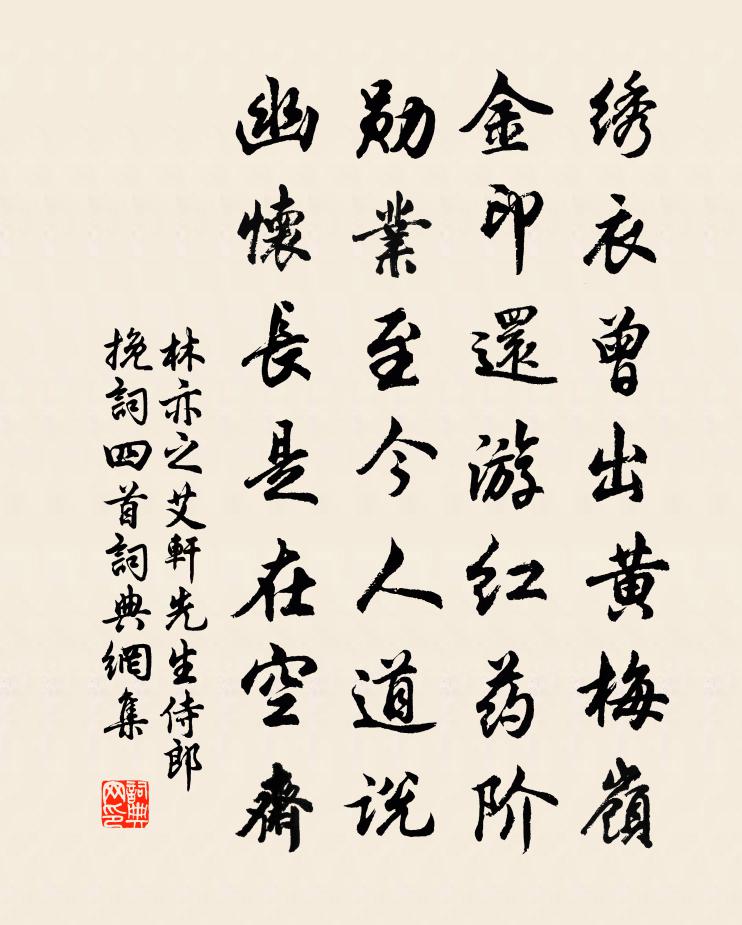 绣衣曾出黄梅嶺
金印還游红药阶
勋業至今人道説
幽懷長是在空齋
林亦之艾軒先生侍郎
挽詞四首詞典網集
詞典网印